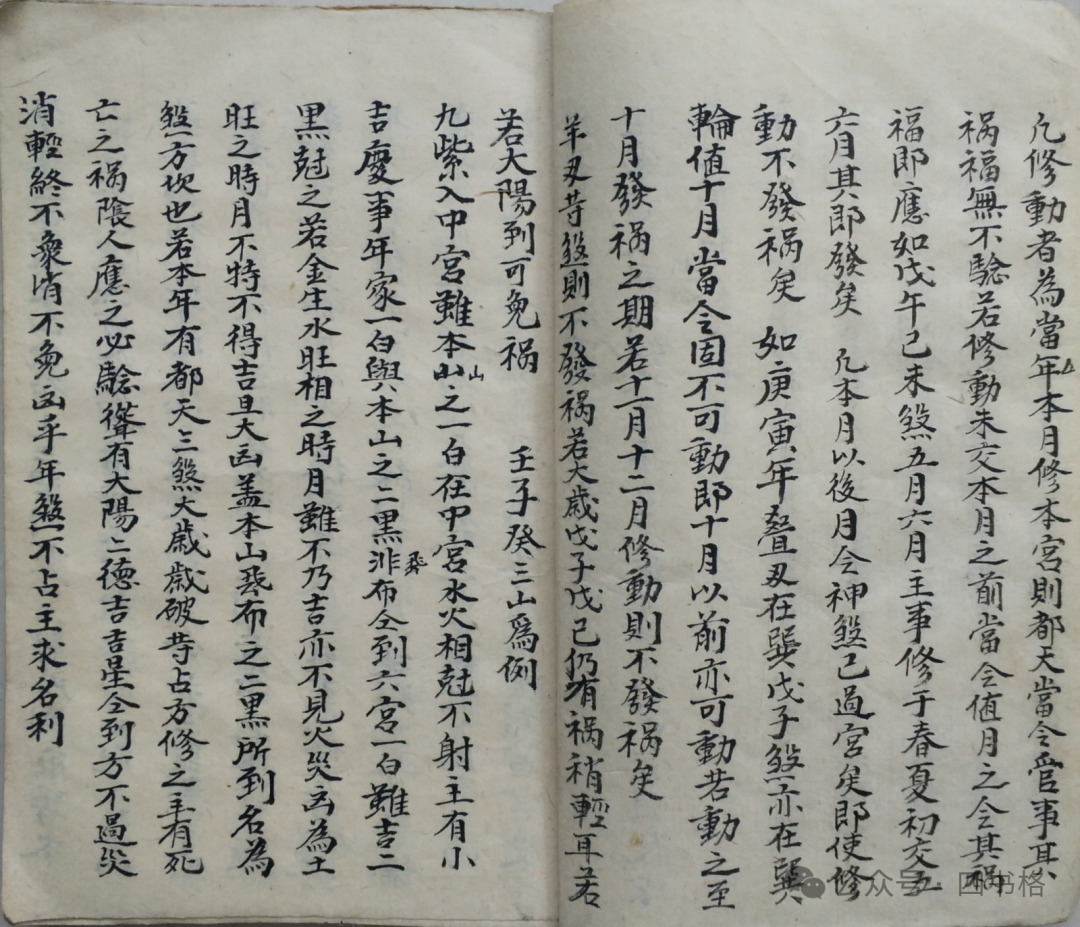 凡修動者為當年本月修本宮則都天當令管事其
祸福無不驗若修動未交本月之前當令值月之令其祸
福即應如戊午己未煞五月六月主事修于春夏初交五
六月其即發矣 凡本月以後月令神煞已過宮矣即使修
動不發祸矣 如庚寅年叠刄在巽戊子煞亦在巽
輪值十月當令固不可動即十月以前亦可動若動之至
十月發祸之期若十一月十二月修動則不發祸矣
羊刄等煞則不發祸若大歲戊子戊己仍有祸稍輕耳若
若大陽到可免祸 壬子癸三山爲例
九紫入中宮雖本山山之一白在中宮水火相尅不射主有小
吉慶事年家一白與本山之二黑飛布仝到六宮一白雖吉二
黑尅之若金生水旺相之時月雖不乃吉亦不見火災凶為土
旺之時月不特不得吉且大凶盖本山飛布之二黒所到名為
煞方坎也若本年有都天三煞大歲歲破等占方修之主有死
亡之祸陰人應之必驗聳有大陽二德吉吉星仝到方不過災
消輕終不衆消不免凶乎年煞不占主求名利
公众号 四书格